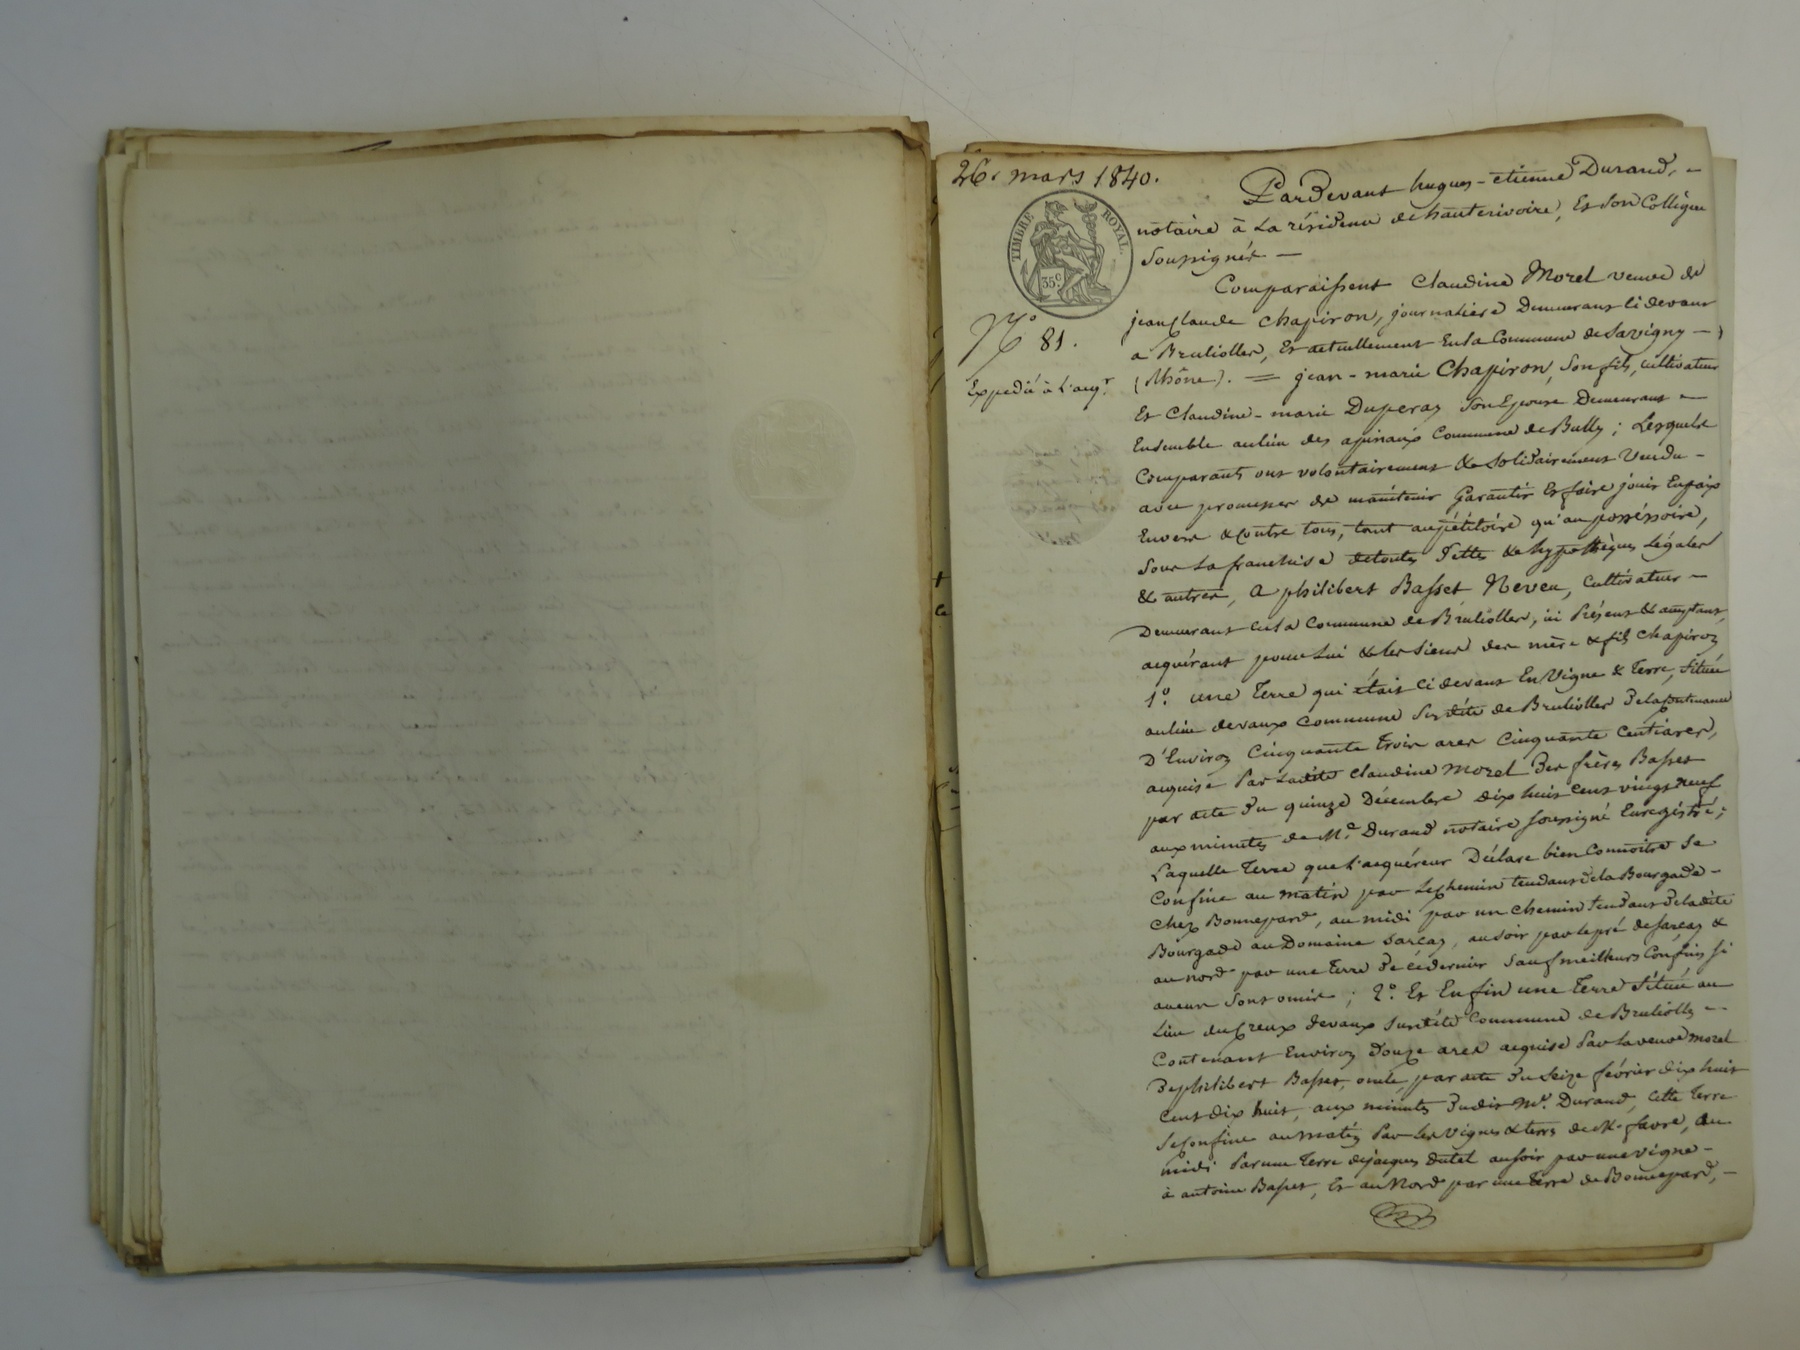 26. mars 1840.
TIMBRE ROYAL
35 c
N.° 81.
Expédié à L'acq.r
Pardevant hugues-etienne Durand, -
notaire à La résidence de hauterivoire, Et Son Collègue
Soussignés —
Comparaissent Claudine Morel veuve de
jean Claude Chapiron, journalière Demeurant ci devant
a Brulioller, Et actuellement En la Commune de Savigny —
(Rhône). = jean-marie Chapiron, Son fils, cultivateur
Et Claudine-marie Duperay Son Epouse Demeurant —
Ensemble au lieu des apinaux Commune de Bully; Lesquels
Comparants ont volontairement & Solidairement Vendu -
avec promesse de maintenir Garantir Et faire jouir En paix
Envers & Contre tous, tant au pétitoire qu'au possessoire,
Sous La franchise de toutes dettes & hypothèques Légales
& autres, A philibert Basset Neveu, Cultivateur —
Demeurant en la Commune de Brulioller, ici Présent & acceptant,
acquérant pour Lui & les Siens des mère & fils Chapiron
1.° une Terre qui était Ci devant En Vigne & Terre, Située
au lieu devaux Commune Susdite de Brulioller De la Contenance
D'Environ Cinquante Trois ares Cinquante Centiares,
acquise Par Ladite Claudine Morel Des frères Basset
par acte du quinze Décembre dix huit Cent vingt neuf
aux minutes de M.e Durand notaire Soussigné Enregistré;
Laquelle Terre que L'acquéreur Déclare bien Connoitre Se
Confine au matin par Le Chemin tendant de la Bourgade -
Chez Bonnepard, au midi par un Chemin Tendant De ladite
Bourgade au Domaine Sarcay, au Soir par le pré de Sarcay &
au nord par une Terre De ce dernier Sauf meilleurs Confins Si
aucuns Sont omis; 2.° Et Enfin une Terre Située au
Lieu du Creux devaux Susdite Commune de Briolles -
Contenant Environ Douze ares acquise Par La veuve Morel
De philibert Basset, oncle, par acte Du Seize février dix huit
Cent dix huit, aux minutes Dudit M.e Durand, Cette Terre
Se Confine au matin Par Les Vignes & terres de M. favre, Au
midi Par une Terre de jacques Dutel au Soir par une vigne -
à antoine Basset, Et au Nord par une Terre de Bonnepard, -